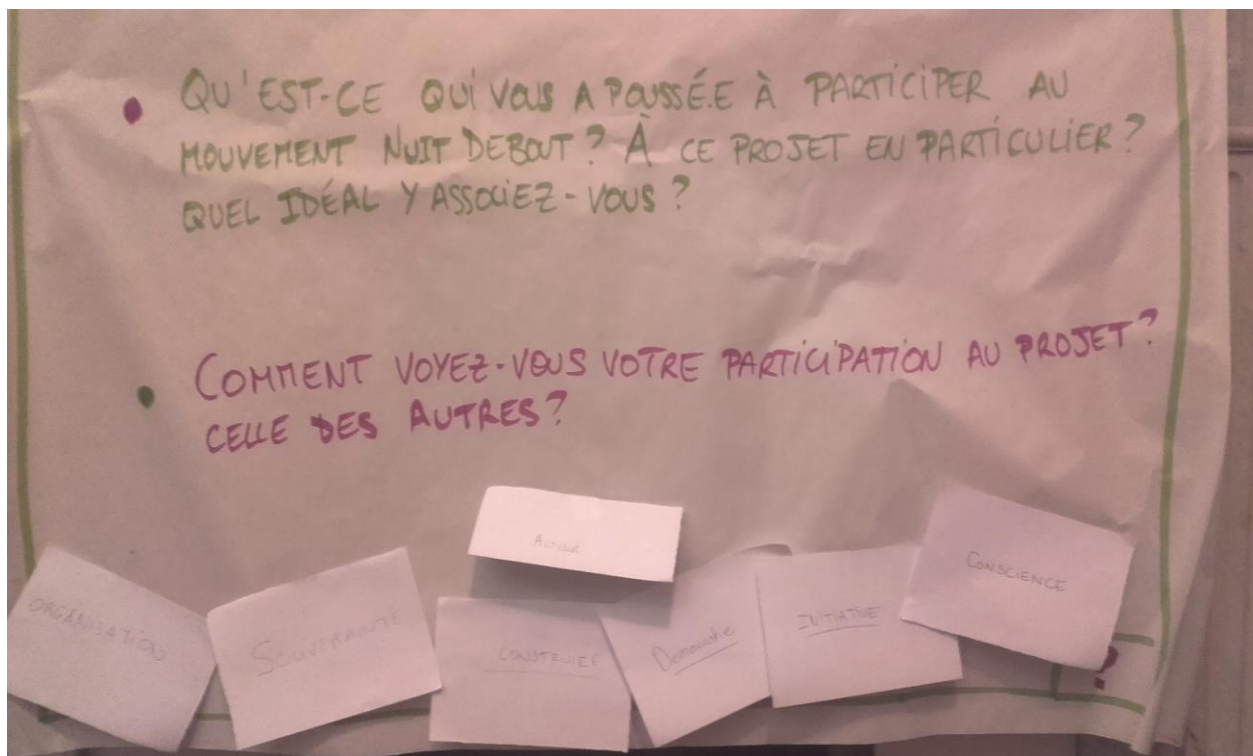 QU'EST-CE QUI VOUS A POUSSÉ.E À PARTICIPER AU
MOUVEMENT NUIT DEBOUT ? À CE PROJET EN PARTICULIER ?
QUEL IDÉAL Y ASSOCIEZ-VOUS ?
COMMENT VOYEZ-VOUS VOTRE PARTICIPATION AU PROJET ?
CELLE DES AUTRES ?
ORGANISATION
SOUVERAINETÉ
CONSTRUIRE
Démocratie
INITIATIVE
CONSCIENCE
?